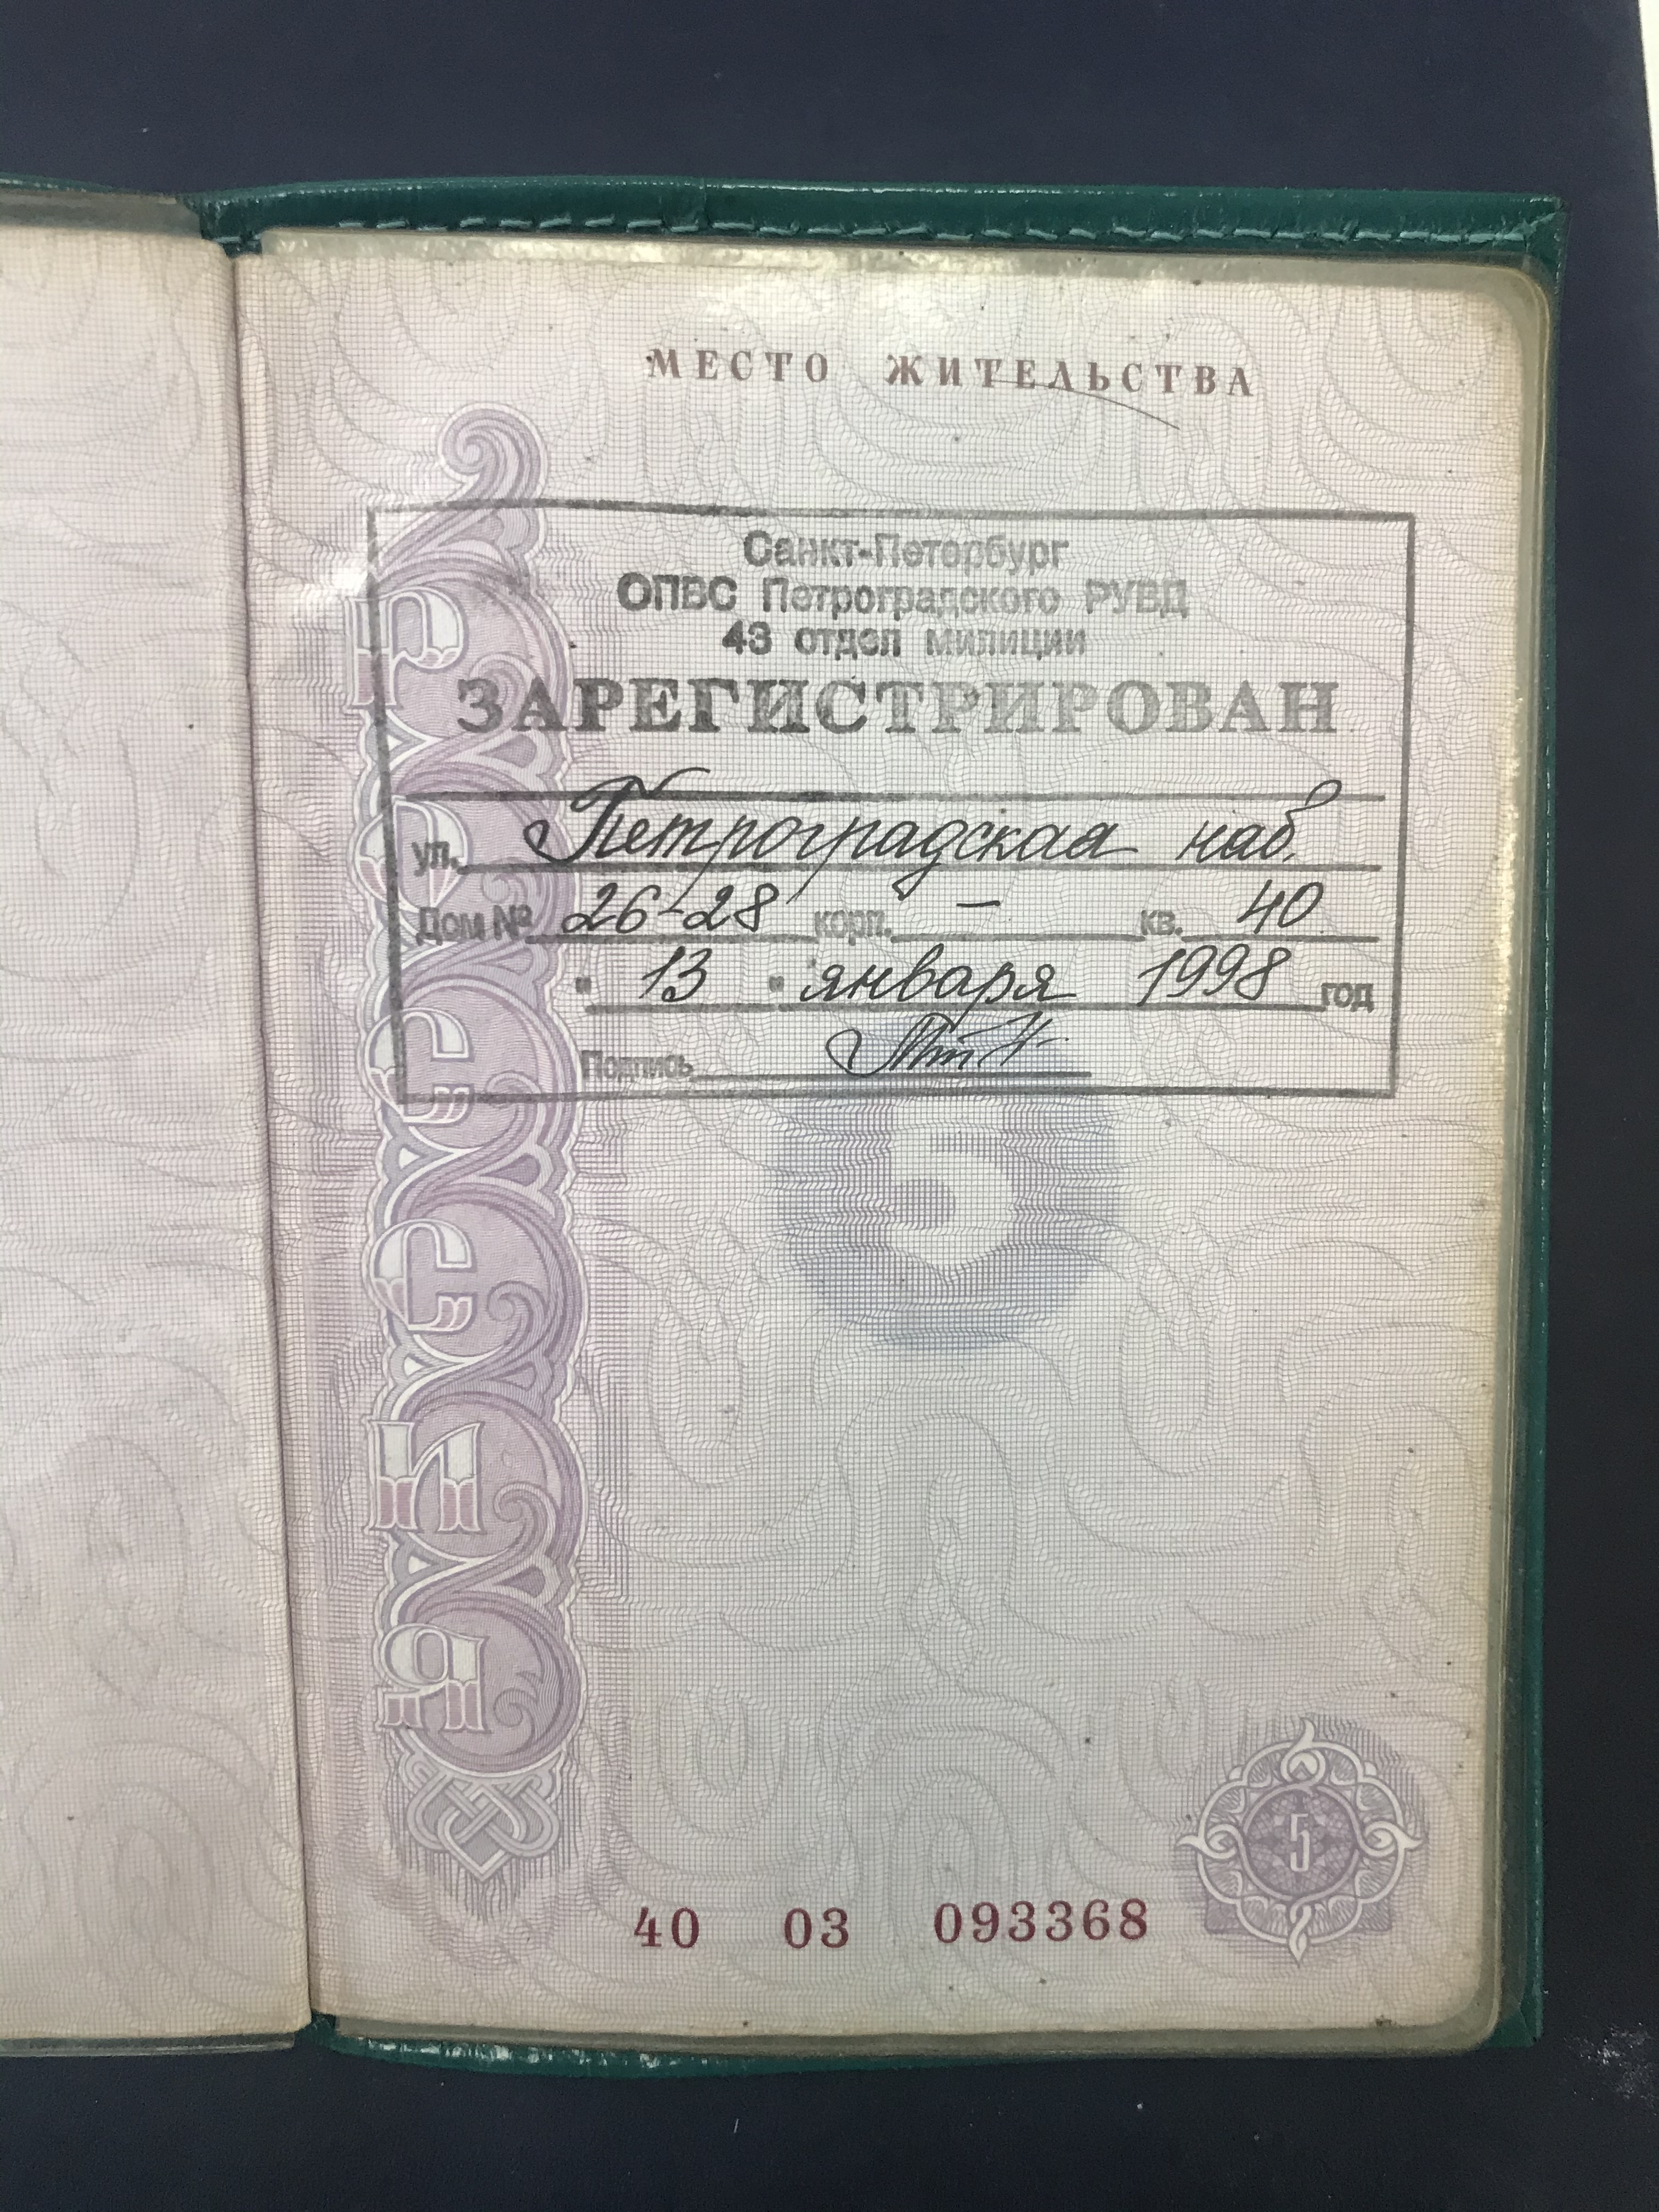 МЕСТО ЖИТЕЛЬСТВА
Санкт-Петербург
ОПВС Петроградского РУВД
43 отдел милиции
ЗАРЕГИСТРИРОВАН
ул. Петроградская наб.
Дом № 26-28 корп. – кв. 40
" 13 " января 1998 год
Подпись
РОССИЯ
5
5
40 03 093368